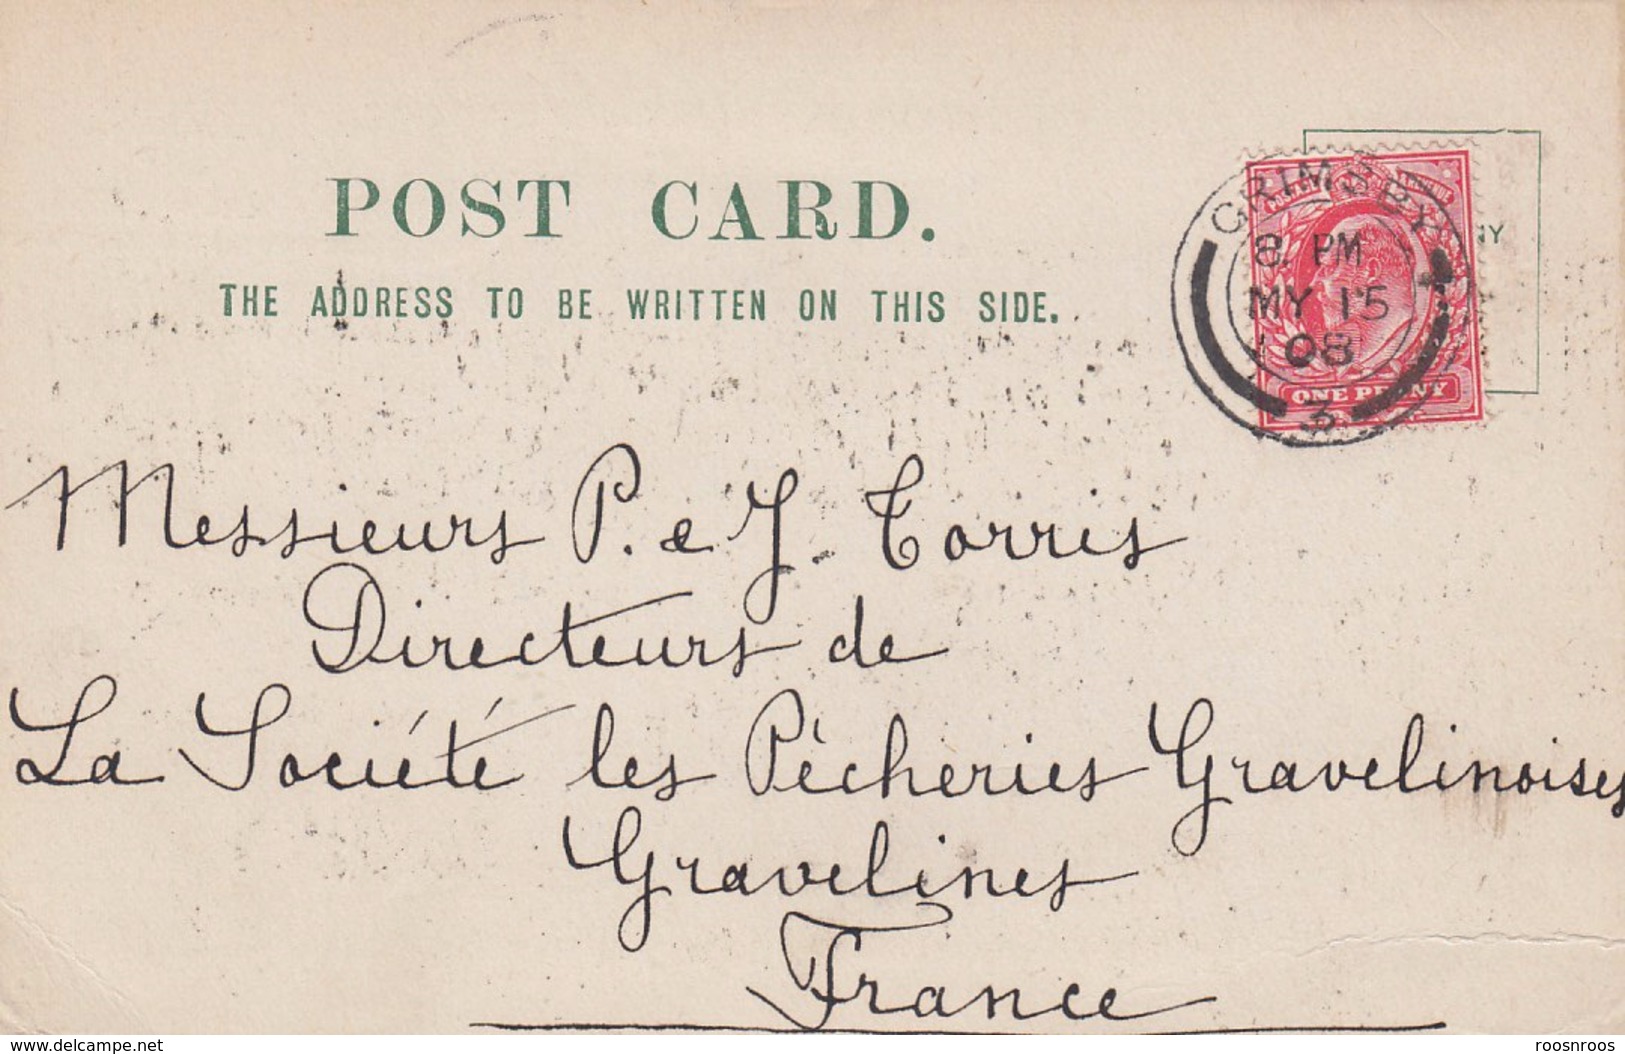 POST CARD.
THE ADDRESS TO BE WRITTEN ON THIS SIDE.
GRIMSBY
8. PM
MY 15
08
3
ONE PENNY
Messieurs P. e J. Torris
Directeurs de
La Société les Pêcheries Gravelinoises
Gravelines
France
www.delcampe.net
roosnroos